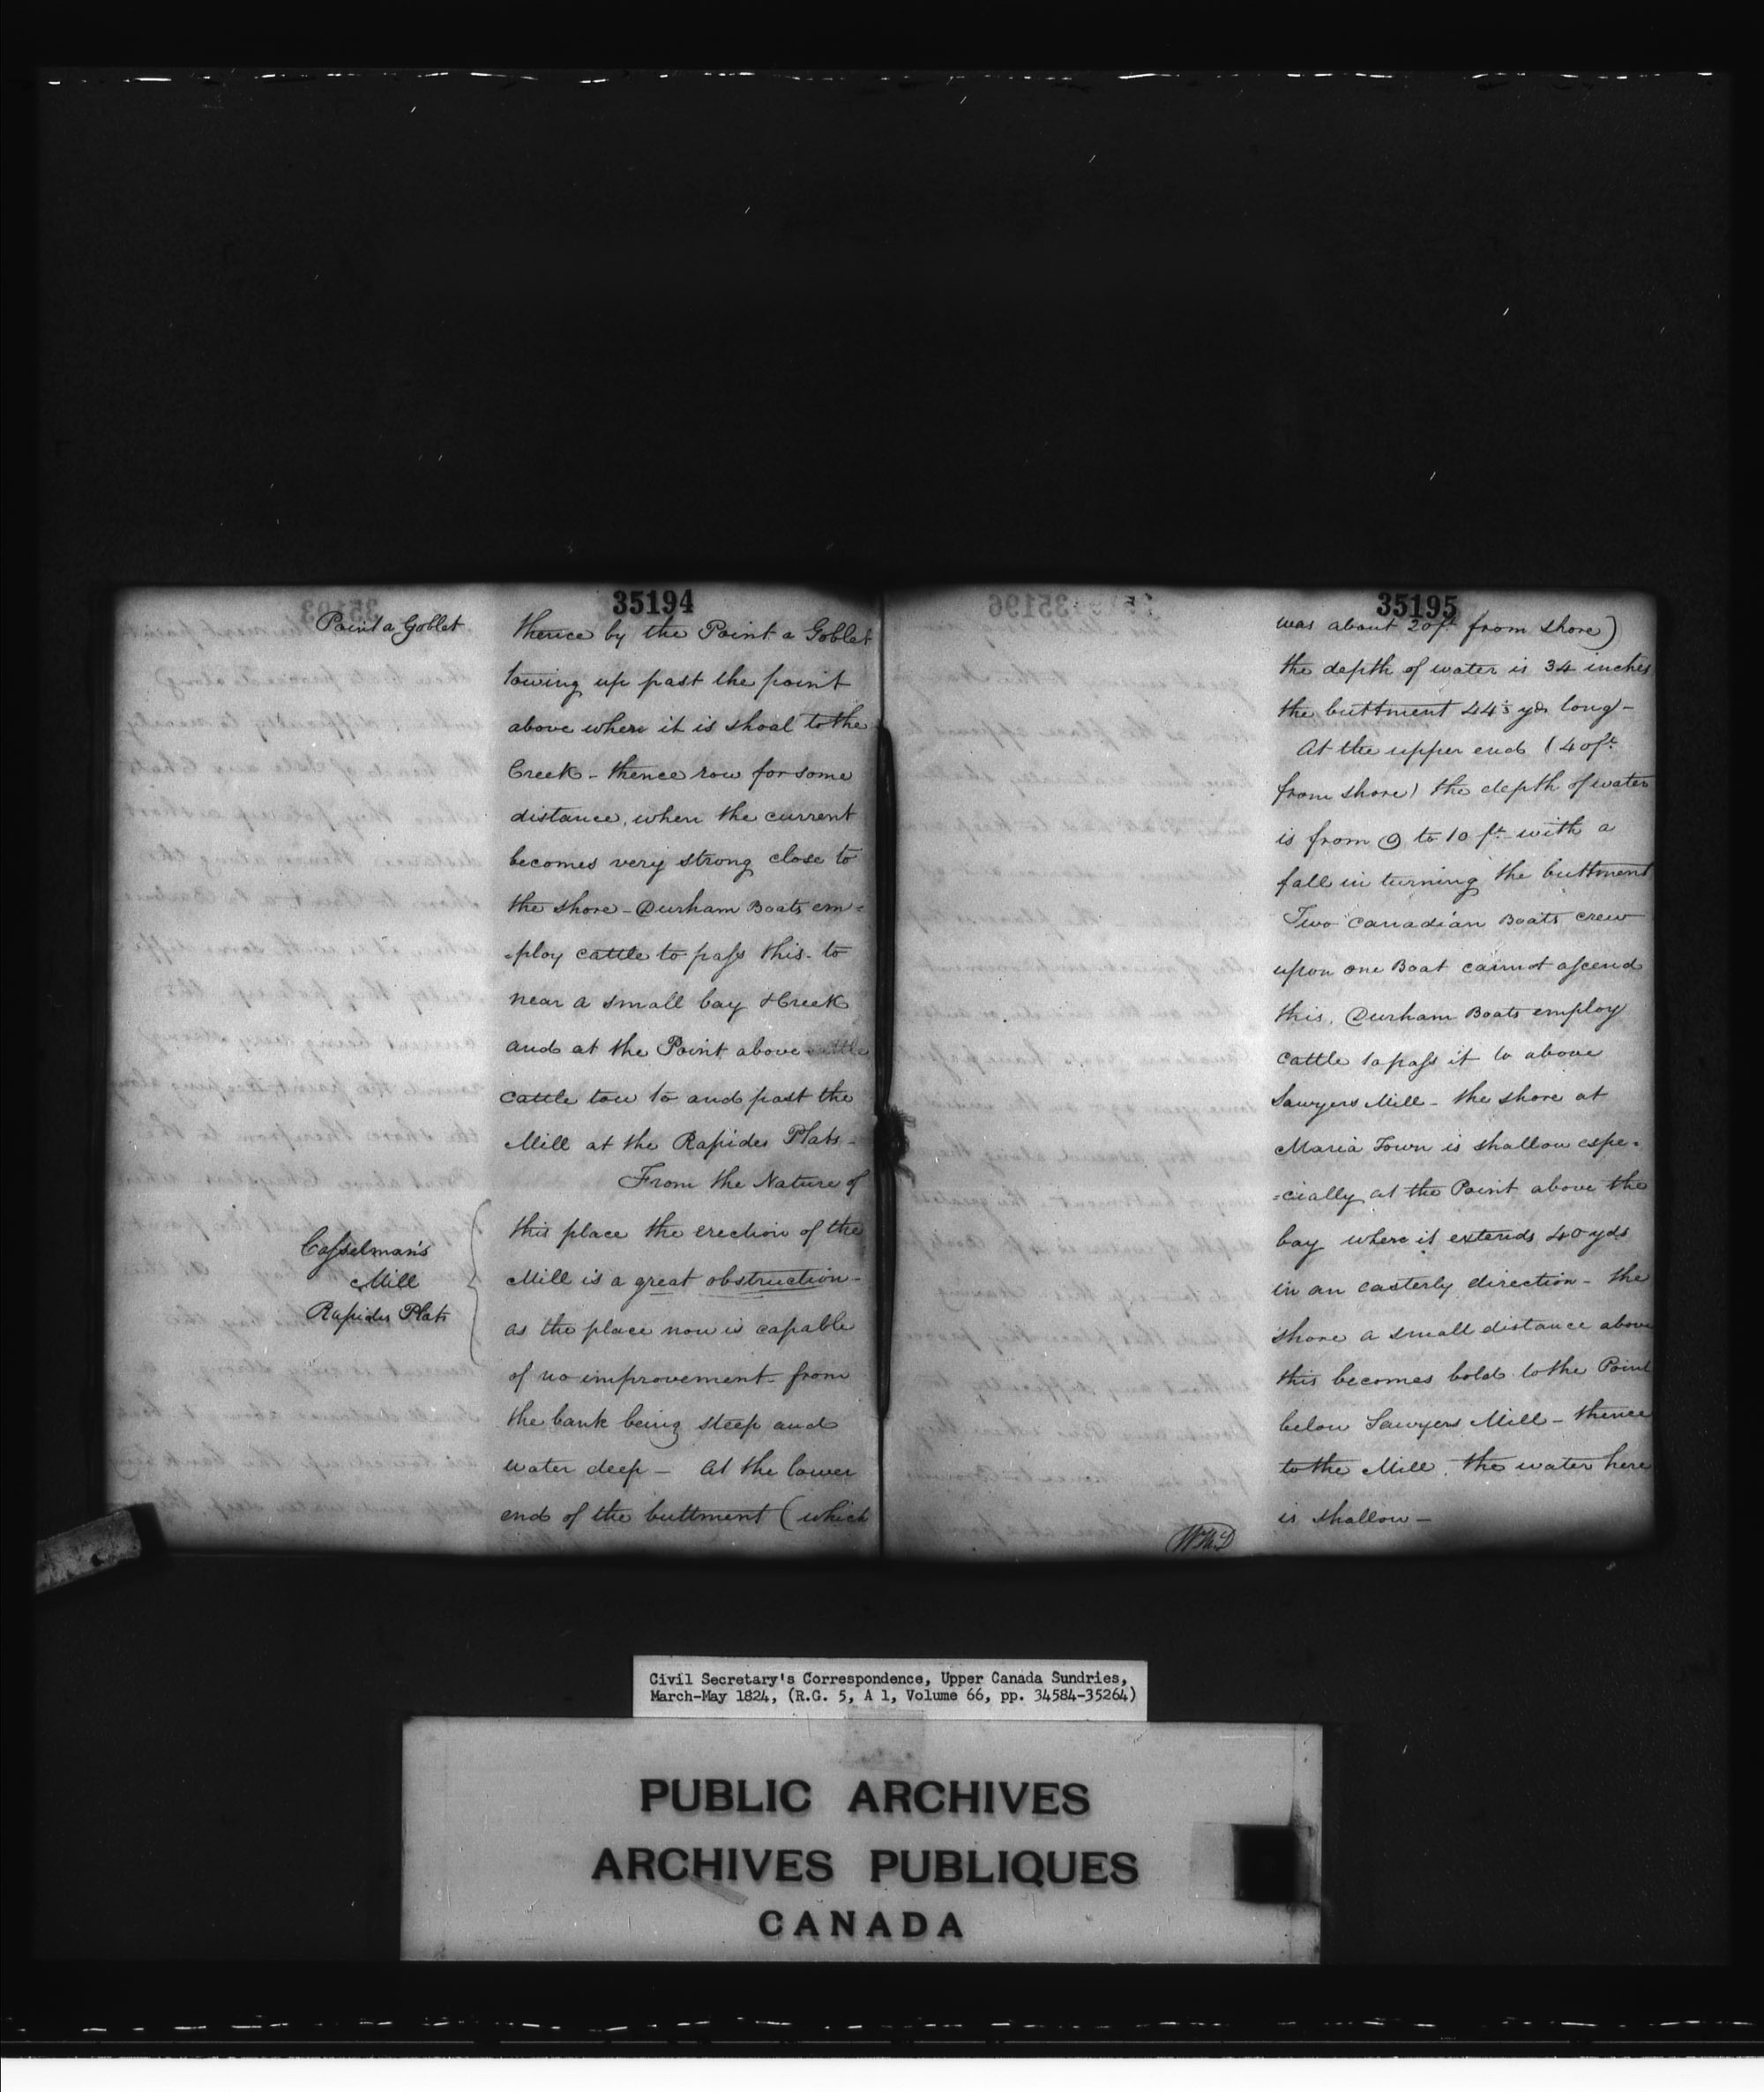 35194
Point a Goblet
thence by the Point a Goblet
towing up past the point
above where it is shoal to the
Creek - thence row for some
distance, when the current
becomes very strong close to
the shore - Durham Boats em=
=ploy cattle to paſs this - to
near a small bay & Creek
and at the Point above
cattle tow to and past the
Mill at the Rapides Plats -
From the Nature of
Caſselman's
Mill
Rapides Plats
this place the erection of the
Mill is a great obstruction -
as the place now is capable
of no improvement - from
the bank being steep and
water deep - At the lower
end of the buttment ( which
35195
was about 20ft from shore )
the depth of water is 34 inches
the buttment yds long -
At the upper end ( 40ft
from shore ) the depth of water
is from 9 to 10 ft with a
fall in turning the buttment
Two Canadian Boats crew
upon one Boat cannot aſcend
this. Durham Boats employ
cattle to paſs it to above
Sawyers Mill - the shore at
Maria Town is shallow espe=
=cially at the Point above the
bay where it extends 40 yds
in an easterly direction - the
shore a small distance above
this becomes bold to the Point
below Sawyers Mill - thence
to the Mill, the water here
is shallow -
Civil Secretary's Correspondence, Upper Canada Sundries,
March-May 1824, (R.G. 5, A 1, Volume 66, pp. 34584-35264)
PUBLIC ARCHIVES
ARCHIVES PUBLIQUES
CANADA